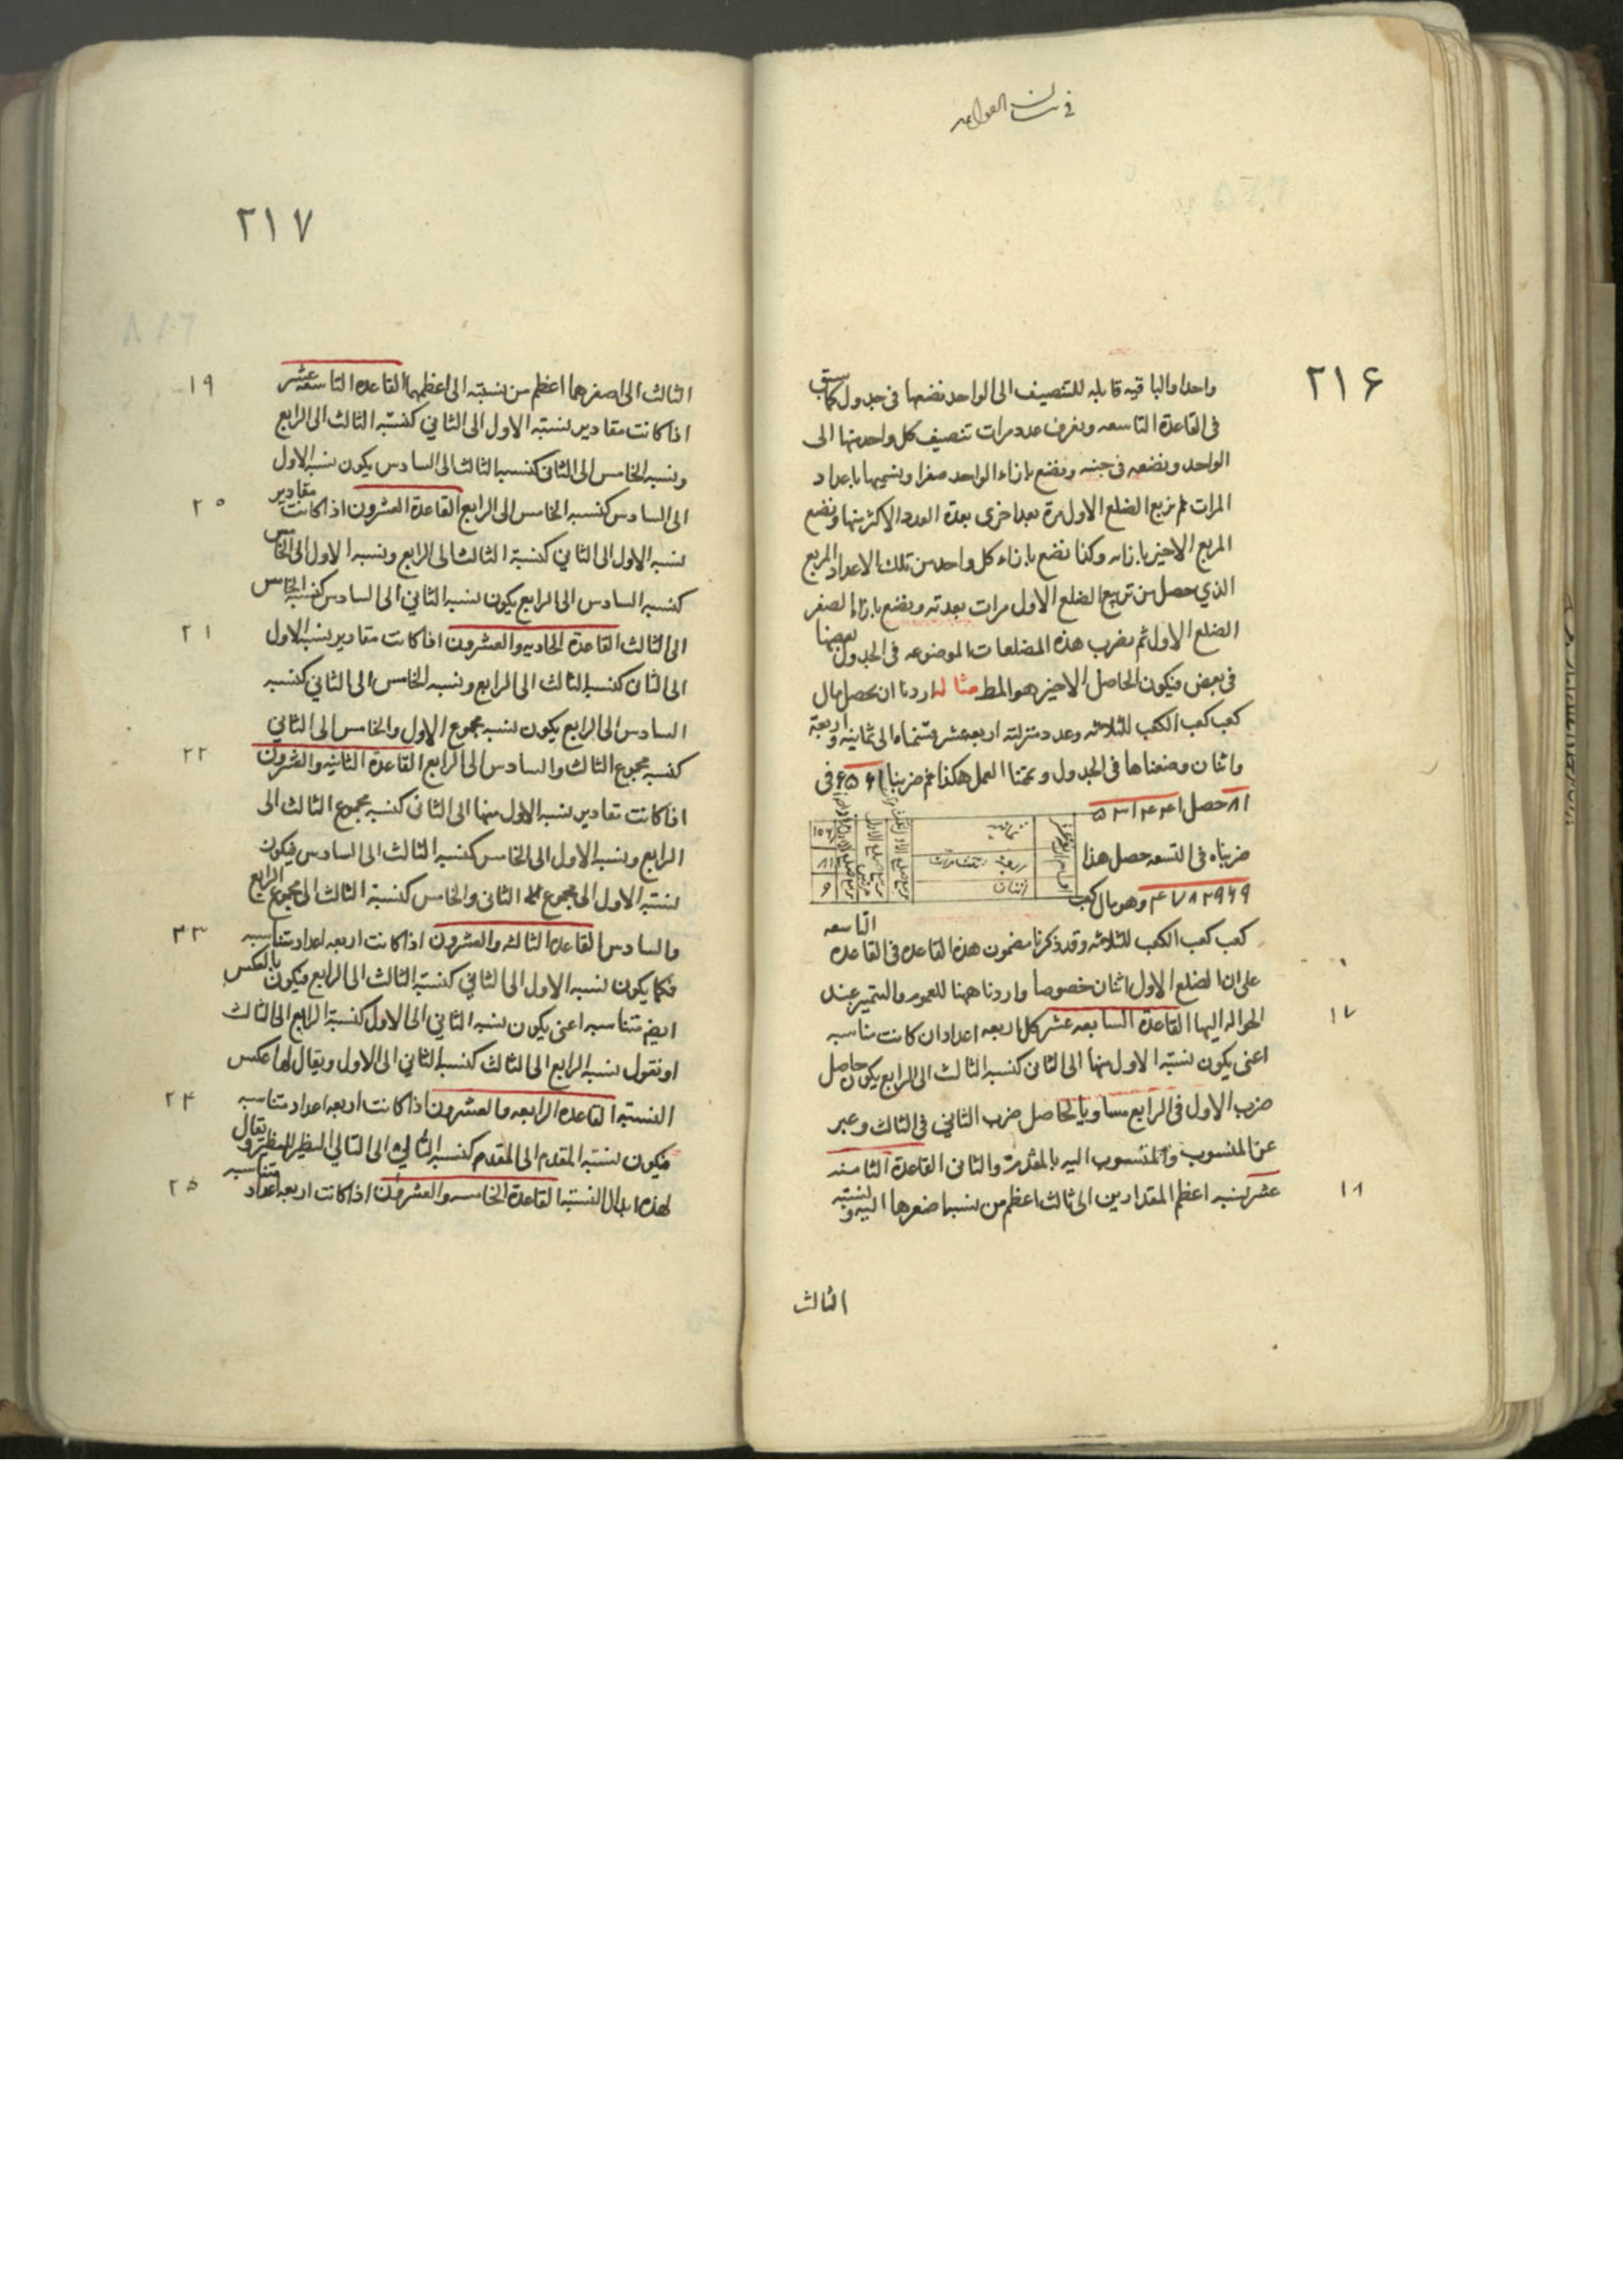 في بيان القواعد
٢١۶
واحدا والباقيه قابله للتنصيف الى الواحد نضعها فى جدول كما سبق
فى القاعدة التاسعه ونعرف عدد مرات تنصيف كل واحد منها الى
الواحد ونضعه فى جنبه ونضع بازاء الواحد صفرا ونسميها باعداد
المرات ثم نربع الضلع الاول مرة بعد اخرى بعدة العدد الاكثر منها ونضع
المربع الاخير بازائه وكذا نضع بازاء كل واحد من تلك الاعداد المربع
الذي حصل من تربيع الضلع الاول مرات بعدته ونضع بازاء الصفر
الضلع الاول ثم نضرب هذه المضلعات الموضوعه فى الجدول بعضها
فى بعض فيكون الحاصل الاخير هو المط مثاله اردنا ان نحصل مال
كعب كعب الكعب للثلاثه وعدد منزلته اربعه عشر قسمناه الى ثمانيه واربعة
واثنان وضعناها فى الجدول وتممنا العمل هكذا ثم ضربنا ۶۵۶۱ فى
٨١ حصل ۵٣١۴۴١
ضربناه فى التسعه حصل هذا
۴٧٨٢٩۶٩ وهو مال كعب
ثمانيه
اربعة
اثنان
٨١
٩
كعب كعب الكعب للثلاثه وقد ذكرنا مضمون هذه القاعده فى القاعده التاسعه
على ان الضلع الاول اثنان خصوصا واردنا ههنا للعموم والتميز عند
الحواله اليها القاعدة السابعه عشر كل اربعه اعداد ان كانت متناسبه
١٧
اعنى يكون نسبته الاول منها الى الثانى كنسبه الثالث الى الرابع يكون حاصل
ضرب الاول فى الرابع مساويا لحاصل ضرب الثاني فى الثالث وعبر
عن المنسوب والمنسوب اليه بالمقدم والثانى القاعدة الثامنه
عشر نسبه اعظم المقدارين الى ثالث اعظم من نسبه اصغرها اليه ونسبته
١٨
الثالث
٢١٧
الثالث الى اصغرهما اعظم من نسبته الى اعظمهما القاعده التاسعه عشر
١٩
اذا كانت مقادير نسبته الاول الى الثاني كنسبته الثالث الى الرابع
ونسبه الخامس الى الثانى كنسبه الثالث الى السادس يكون نسبه الاول
الى السادس كنسبه الخامس الى الرابع القاعدة العشرون اذا كانت مقادير
٢٠
نسبه الاول الى الثاني كنسبة الثالث الى الرابع ونسبه الاول الى الخامس
كنسبه السادس الى الرابع يكون نسبه الثاني الى السادس كنسبه الخامس
الى الثالث القاعدة الحاديه والعشرون اذا كانت مقادير نسبه الاول
٢١
الى الثانى كنسبه الثالث الى الرابع ونسبه الخامس الى الثاني كنسبه
السادس الى الرابع يكون نسبه مجموع الاول والخامس الى الثاني
كنسبه مجموع الثالث والسادس الى الرابع القاعدة الثانيه والعشرون
٢٢
اذا كانت مقادير نسبه الاول منها الى الثانى كنسبه مجموع الثالث الى
الرابع ونسبه الاول الى الخامس كنسبه الثالث الى السادس فيكون
نسبته الاول الى مجموع الثانى والخامس كنسبة الثالث الى مجموع الرابع
والسادس القاعده الثالثه والعشرون اذا كانت اربعه اعداد متناسبه
٢٣
فكما يكون نسبه الاول الى الثاني كنسبته الثالث الى الرابع فيكون بالعكس
ايضم متناسبه اعنى يكون نسبه الثاني الى الاول كنسبة الرابع الى الثالث
او نقول نسبه الرابع الى الثالث كنسبه الثاني الى الاول ويقال لها عكس
النسبته القاعده الرابعه والعشرون اذا كانت اربعه اعداد متناسبه
٢۴
فيكون نسبته المقدم الى المقدم كنسبه التالي الى التالي النظير للنظير ويقال
لهذه ابدال النسبه القاعدة الخامسه والعشرون اذا كانت اربعه اعداد متناسبه
٢۵